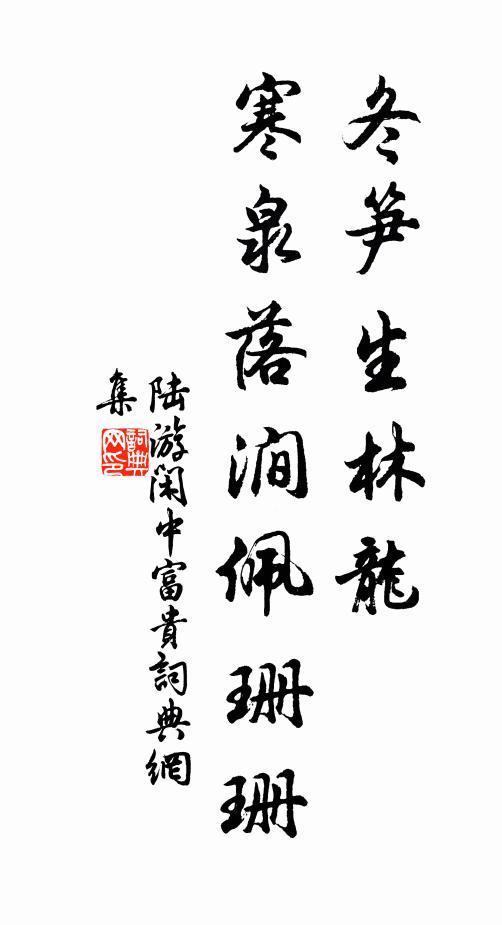 冬笋生林龍
寒泉落澗佩珊珊
陆游闲中富貴詞典網
集
詞典网印